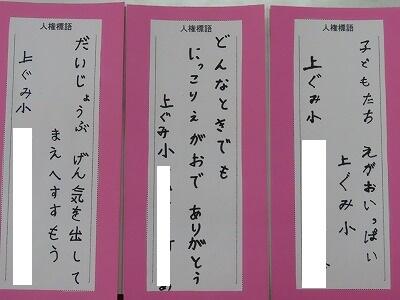 人権標語
子どもたち えがおいっぱい
上ぐみ小
上ぐみ小
人権標語
どんなときでも
にっこりえがおで ありがとう
上ぐみ小
人権標語
だいじょうぶ げん気を出して
まえへすすもう
上ぐみ小